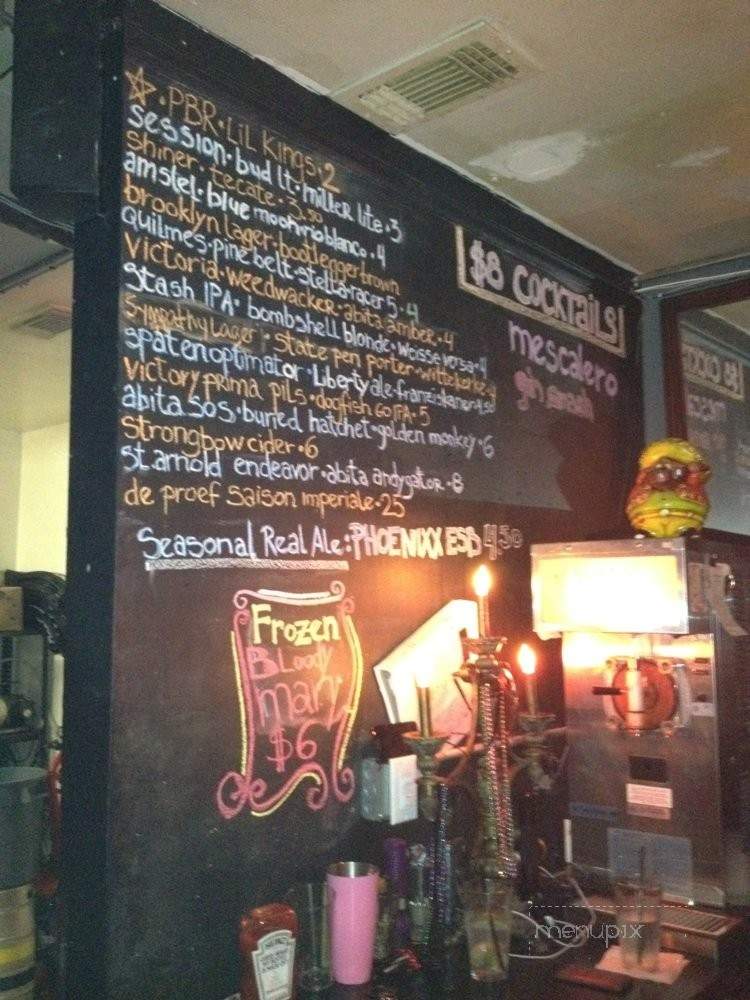 PBR · LiL Kings · 2
Session · bud lt · miller lite · 3
shiner · tecate · 3.50
amstel · blue moon · rio blanco · 4
brooklyn lager · bootlegger brown
Quilmes · pine belt · stella · racer 5 · 4
Victoria · weedwacker · abita amber · 4
Stash IPA · bombshell blonde · weisse versa · 4
Sympathy Lager · State pen porter · wittekerke · 4
spaten optimator · Liberty ale · franziskaner 4.50
victory prima pils · dogfish 60 IPA · 5
abita SOS · buried hatchet · golden monkey · 6
Strongbow cider · 6
st. arnold endeavor · abita andygator · 8
de proef Saison imperiale · 25
Seasonal Real Ale: PHOENIXX ESB 4.50
$8 COCKTAILS
mescalero
gin smash
Frozen
BLoody
mary
$6
HEINZ
menupix